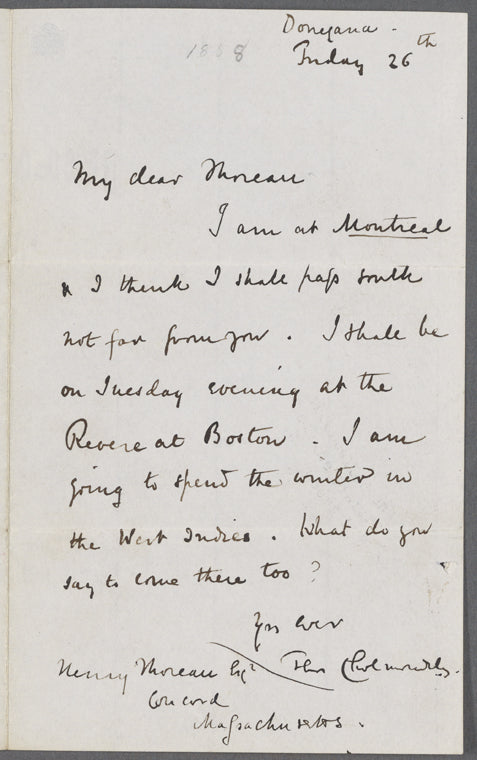 Donegana.
1858
Friday 26th
My dear Thoreau
I am at Montreal
& I think I shall pass south
not far from you. I shall be
on Tuesday evening at the
Revere at Boston. I am
going to spend the winter in
the West Indies. What do you
say to come there too?
Yrs ever
Thos Cholmondeley.
Henry Thoreau Esqr
Concord
Massachusetts.